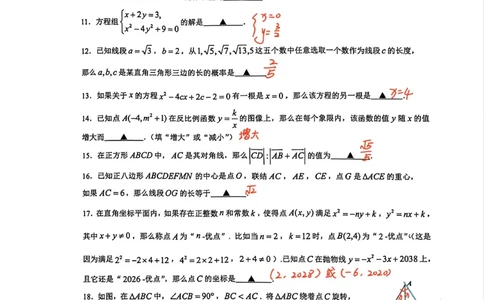 11. 方程组 { x+2y=3, x²-4y²+9=0 的解是 ▲ . { x=0 y=3/2
12. 已知线段 a=√3, b=2, 从1, √5, √7, √13, 5这五个数中任意选取一个数作为线段c的长度,
那么a,b,c是某直角三角形三边的长的概率是 ▲ . 2/5
13. 如果关于x的方程 x²-4cx+2c-2=0有一根是x=0, 那么该方程的另一根是 ▲ . x=4
14. 已知点A(-4,m²+1)在反比例函数 y=k/x 的图像上, 那么在每个象限内, 该函数的值y随x的值
增大而 ▲ . (填“增大”或“减小”) 增大
15. 在正方形ABCD中, AC是其对角线, 那么 |CD|:|AB+AC| 的值为 ▲ .
16. 已知正八边形ABCDEFMN的中心是点O, 联结AC, AE, CE, 点G是△ACE的重心,
如果AC=6, 那么线段OG的长等于 ▲ . √2
17. 在直角坐标平面内, 如果存在正整数n和常数k, 使得点A(x,y)满足x²=-ny+k, y²=nx+k,
其中x+y≠0, 那么称点A为“n-优点”. 比如当n=2, k=12时, 点B(2,4)为“2-优点”(这是
因为满足2²=-2×4+12, 4²=2×2+12, 2+4≠0).已知点C在抛物线y=-x²-3x+2038上,
且它还是“2026-优点”, 那么点C的坐标是 ▲ . (2, 2028) 或 (-6, 2020)
18. 如图, 在△ABC中, ∠ACB=90°, BC<AC. 将△ABC绕着点C旋转,
A